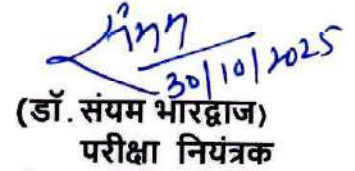 संयम
30/10/2025
(डॉ. संयम भारद्वाज)
परीक्षा नियंत्रक